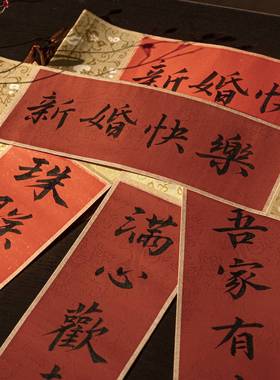 新婚快
新婚快樂
珠
滿心歡
吾家有